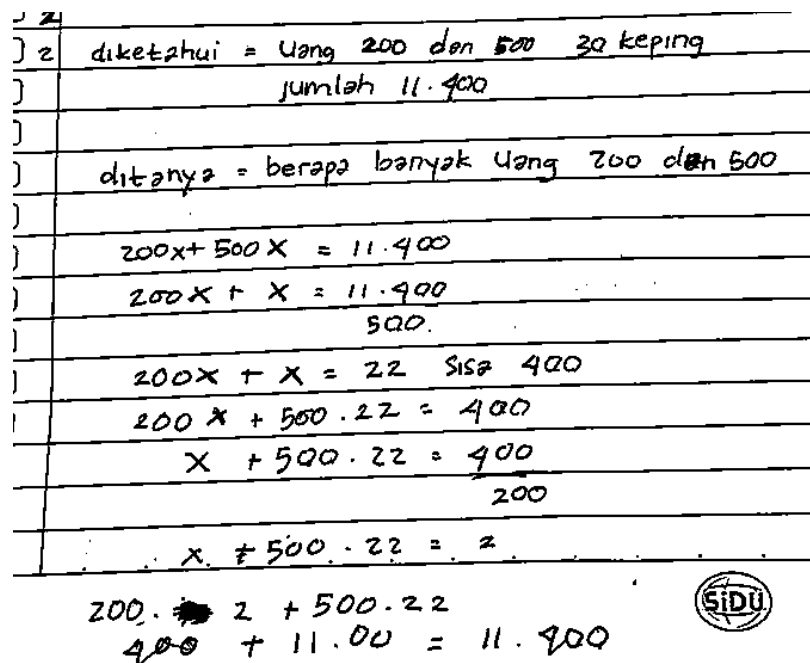 2 diketahui = Uang 200 dan 500 30 keping
jumlah 11.400
ditanya = berapa banyak Uang 200 dan 500
200x + 500x = 11.400
200x + x = 11.400
500.
200x + x = 22 sisa 400
200x + 500.22 = 400
x + 500.22 = 400
200
x + 500.22 = 2
200. 2 + 500.22
400 + 11.00 = 11.400
SiDU